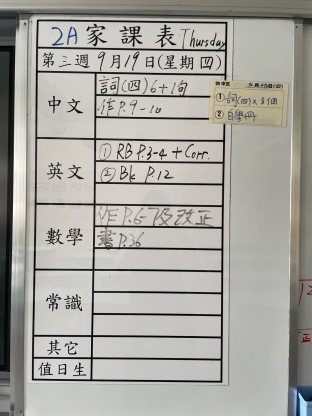 2A 家課表 Thursday
第三週 9月19日(星期四)
中文
詞(四)6+1句
作P.9-10
英文
① RB P.3-4 + Corr.
② Bk P.12
數學
作P.6-7及改正
書P.36
常識
其它
值日生
① 詞(四)x
② 自學冊